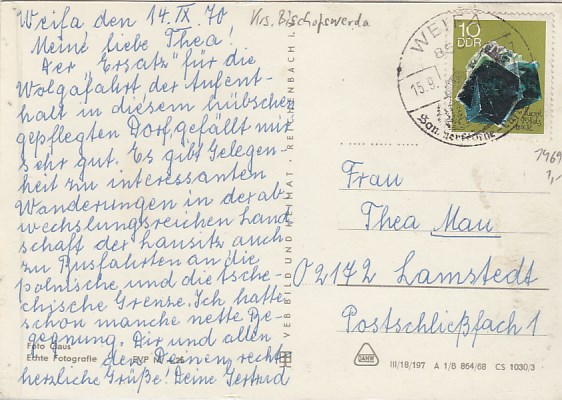 Weifa den 14.IX.70
Meine liebe Thea!
Der "Ersatz" für die
Wolgafahrt, der Aufent-
halt in diesem hübschen
gepflegten Dorf, gefällt mir
sehr gut. Es gibt Gelegen-
heit zu interessanten
Wanderungen in der ab
wechslungsreichen Land
schaft der Lausitz auch
zu Ausfahrten an die
polnische und die tsche-
chische Grenze. Ich hatte
schon manche nette Be-
gegnung. Dir und allen
den Deinen recht
herzliche Grüße! Deine Gertrud
Foto Claus
Echte Fotografie EVP M
Krs. Bischofswerda
VEB BILD UND HEIMAT REICHENBACH I.
WEIFA
15.9.
10
DDR
1969
1,-
Frau
Thea Mau
02172 Lamstedt
Postschließfach 1
III/18/197 A 1/B 864/68 CS 1030/3